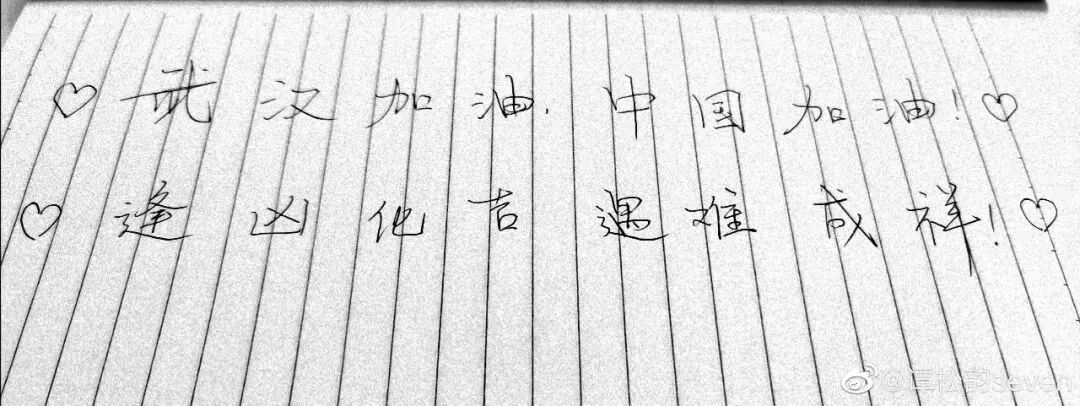 ♡ 武汉加油,中国加油!♡
♡ 逢凶化吉 遇难成祥!♡
@卓松韵seven